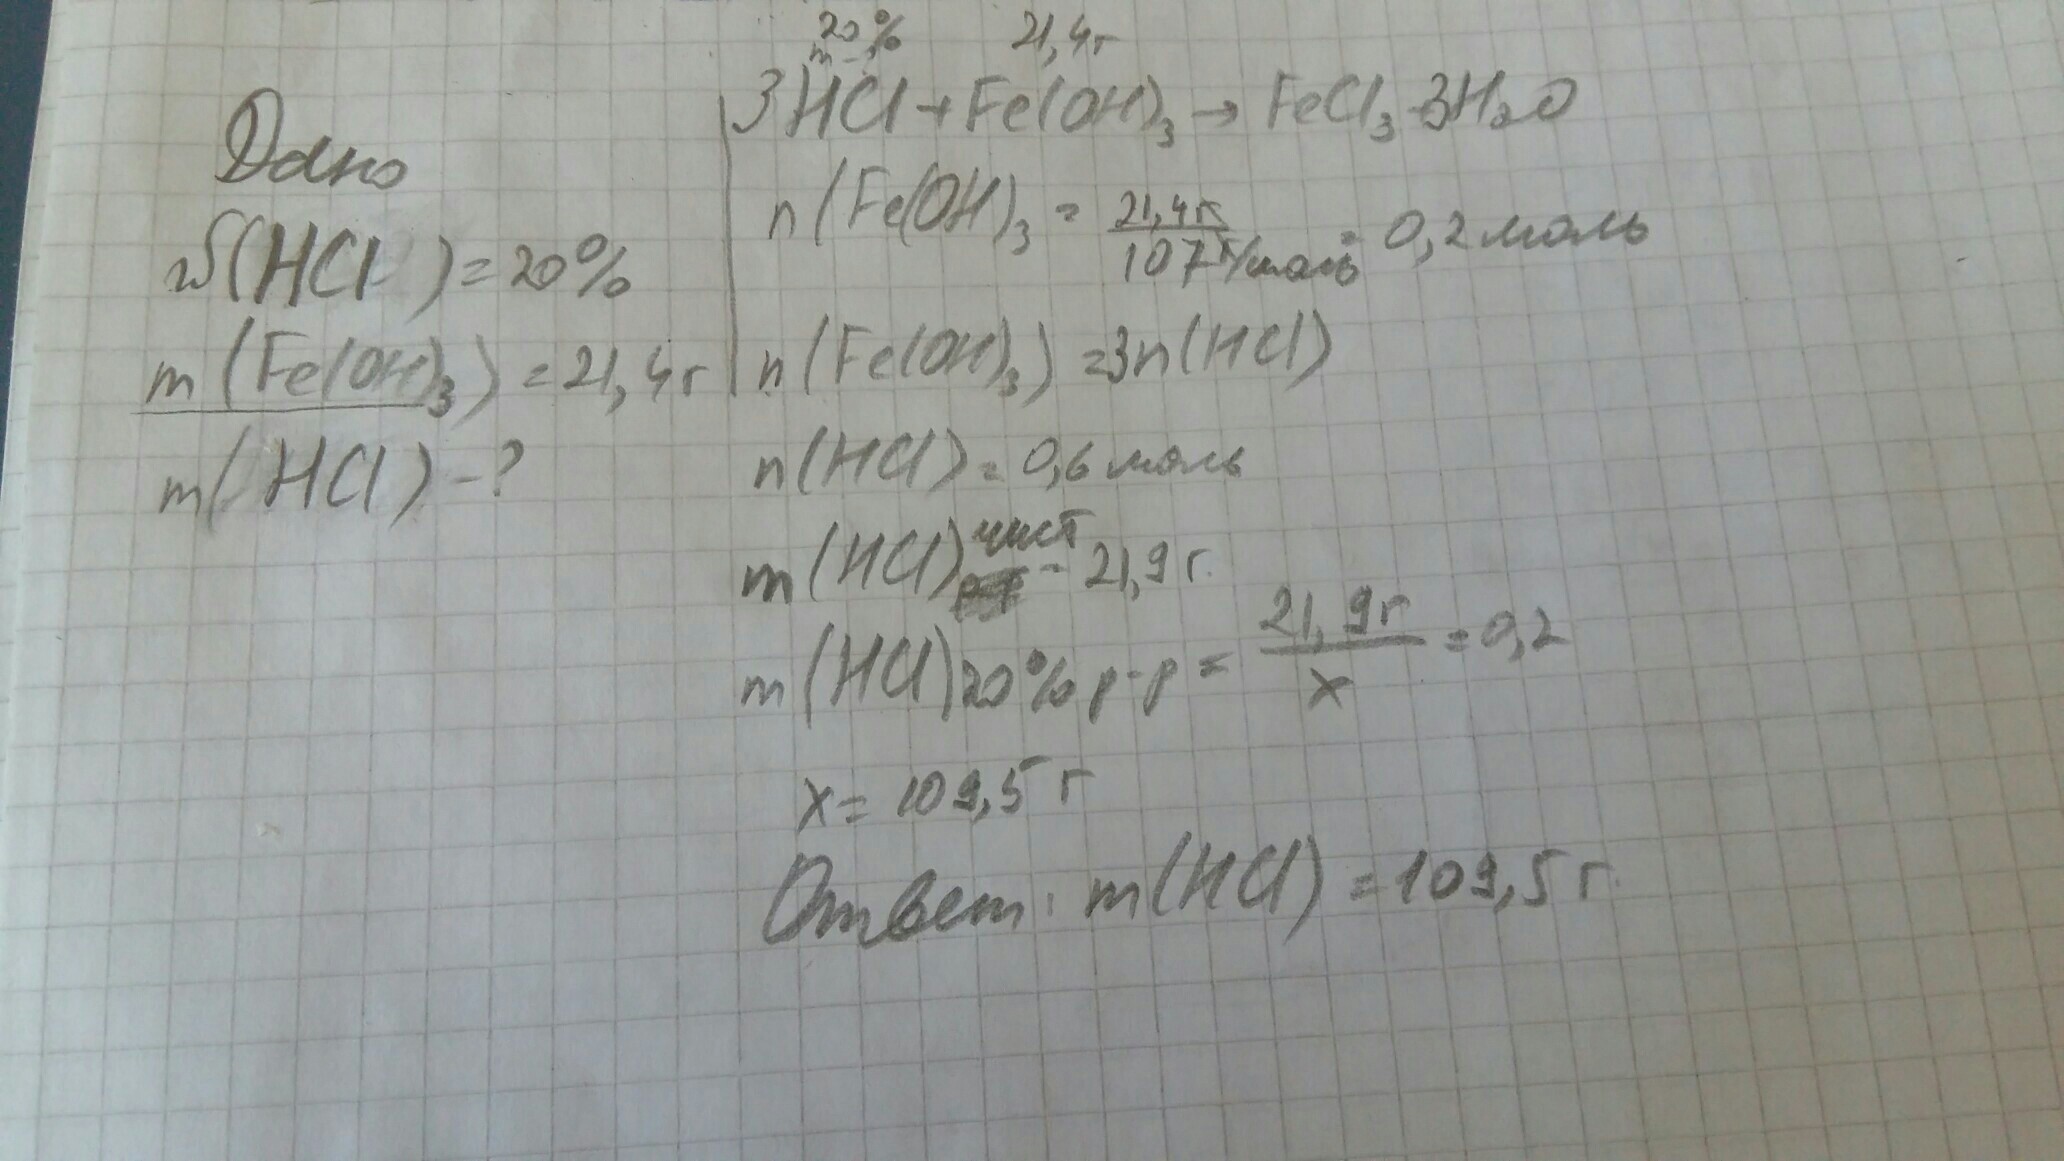 Дано
w(HCl) = 20%
m(Fe(OH)3) = 21,4г
m(HCl) - ?
20% 21,4г
3HCl + Fe(OH)3 → FeCl3 + 3H2O
n(Fe(OH)3 = 21,4г / 107г/моль = 0,2 моль
n(Fe(OH)3) = 3n(HCl)
n(HCl) = 0,6 моль
m(HCl) чист = 21,9г.
m(HCl) 20% р-р = 21,9г / x = 0,2
x = 109,5 г
Ответ: m(HCl) = 109,5 г.